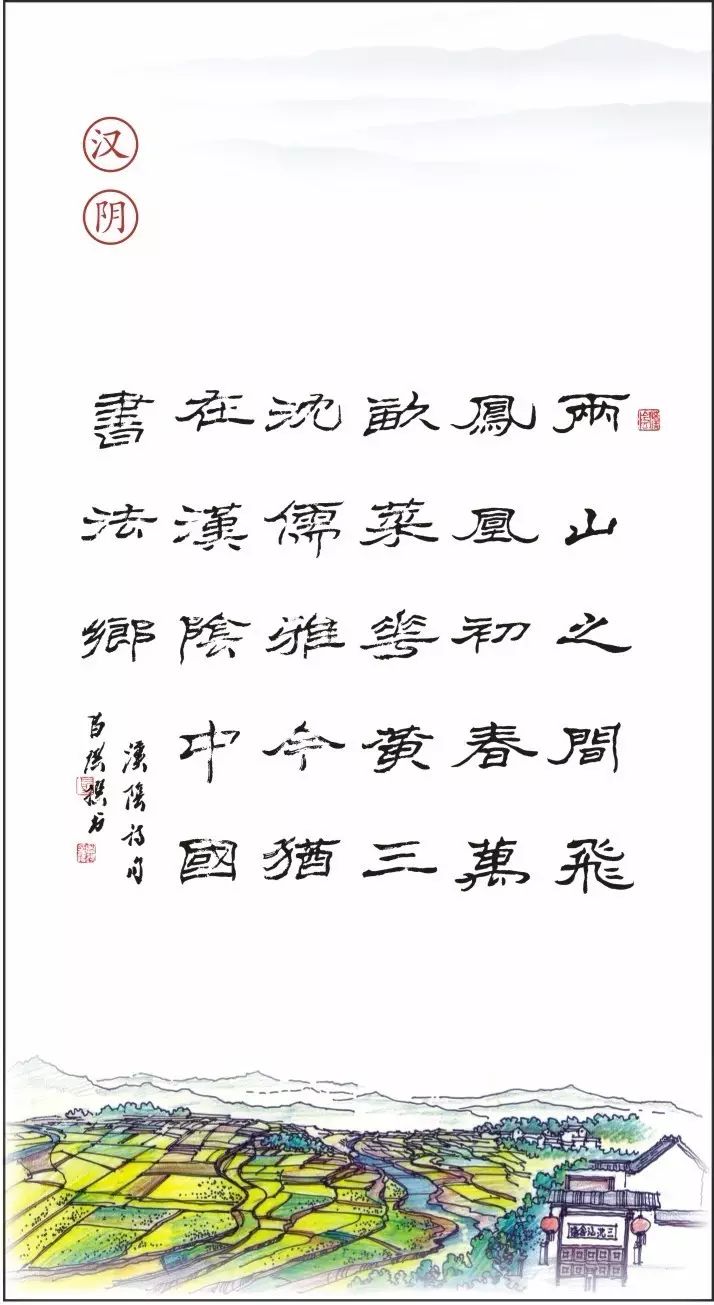 汉
阴
兩山之間飛
鳳凰初春萬
畝菜花黃三
沈儒雅今猶
在漢陰中國
書法鄉
漢陰詩句
撰書